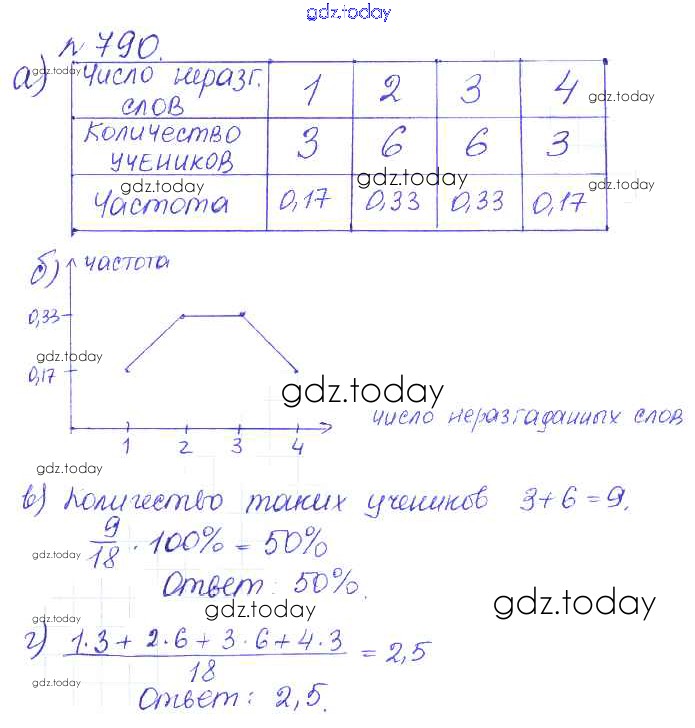 gdz.today
№ 790.
а) Число неразг. слов 1 2 3 4
Количество учеников 3 6 6 3
Частота 0,17 0,33 0,33 0,17
gdz.today
gdz.today
gdz.today
gdz.today
gdz.today
б) частота
0,33
gdz.today
0,17
gdz.today
1 2 3 4
число неразгаданных слов
gdz.today
в) Количество таких учеников 3+6=9.
9/18 · 100% = 50%
gdz.today
Ответ: 50%.
gdz.today
gdz.today
gdz.today
г) (1·3 + 2·6 + 3·6 + 4·3)/18 = 2,5
gdz.today
Ответ: 2,5.